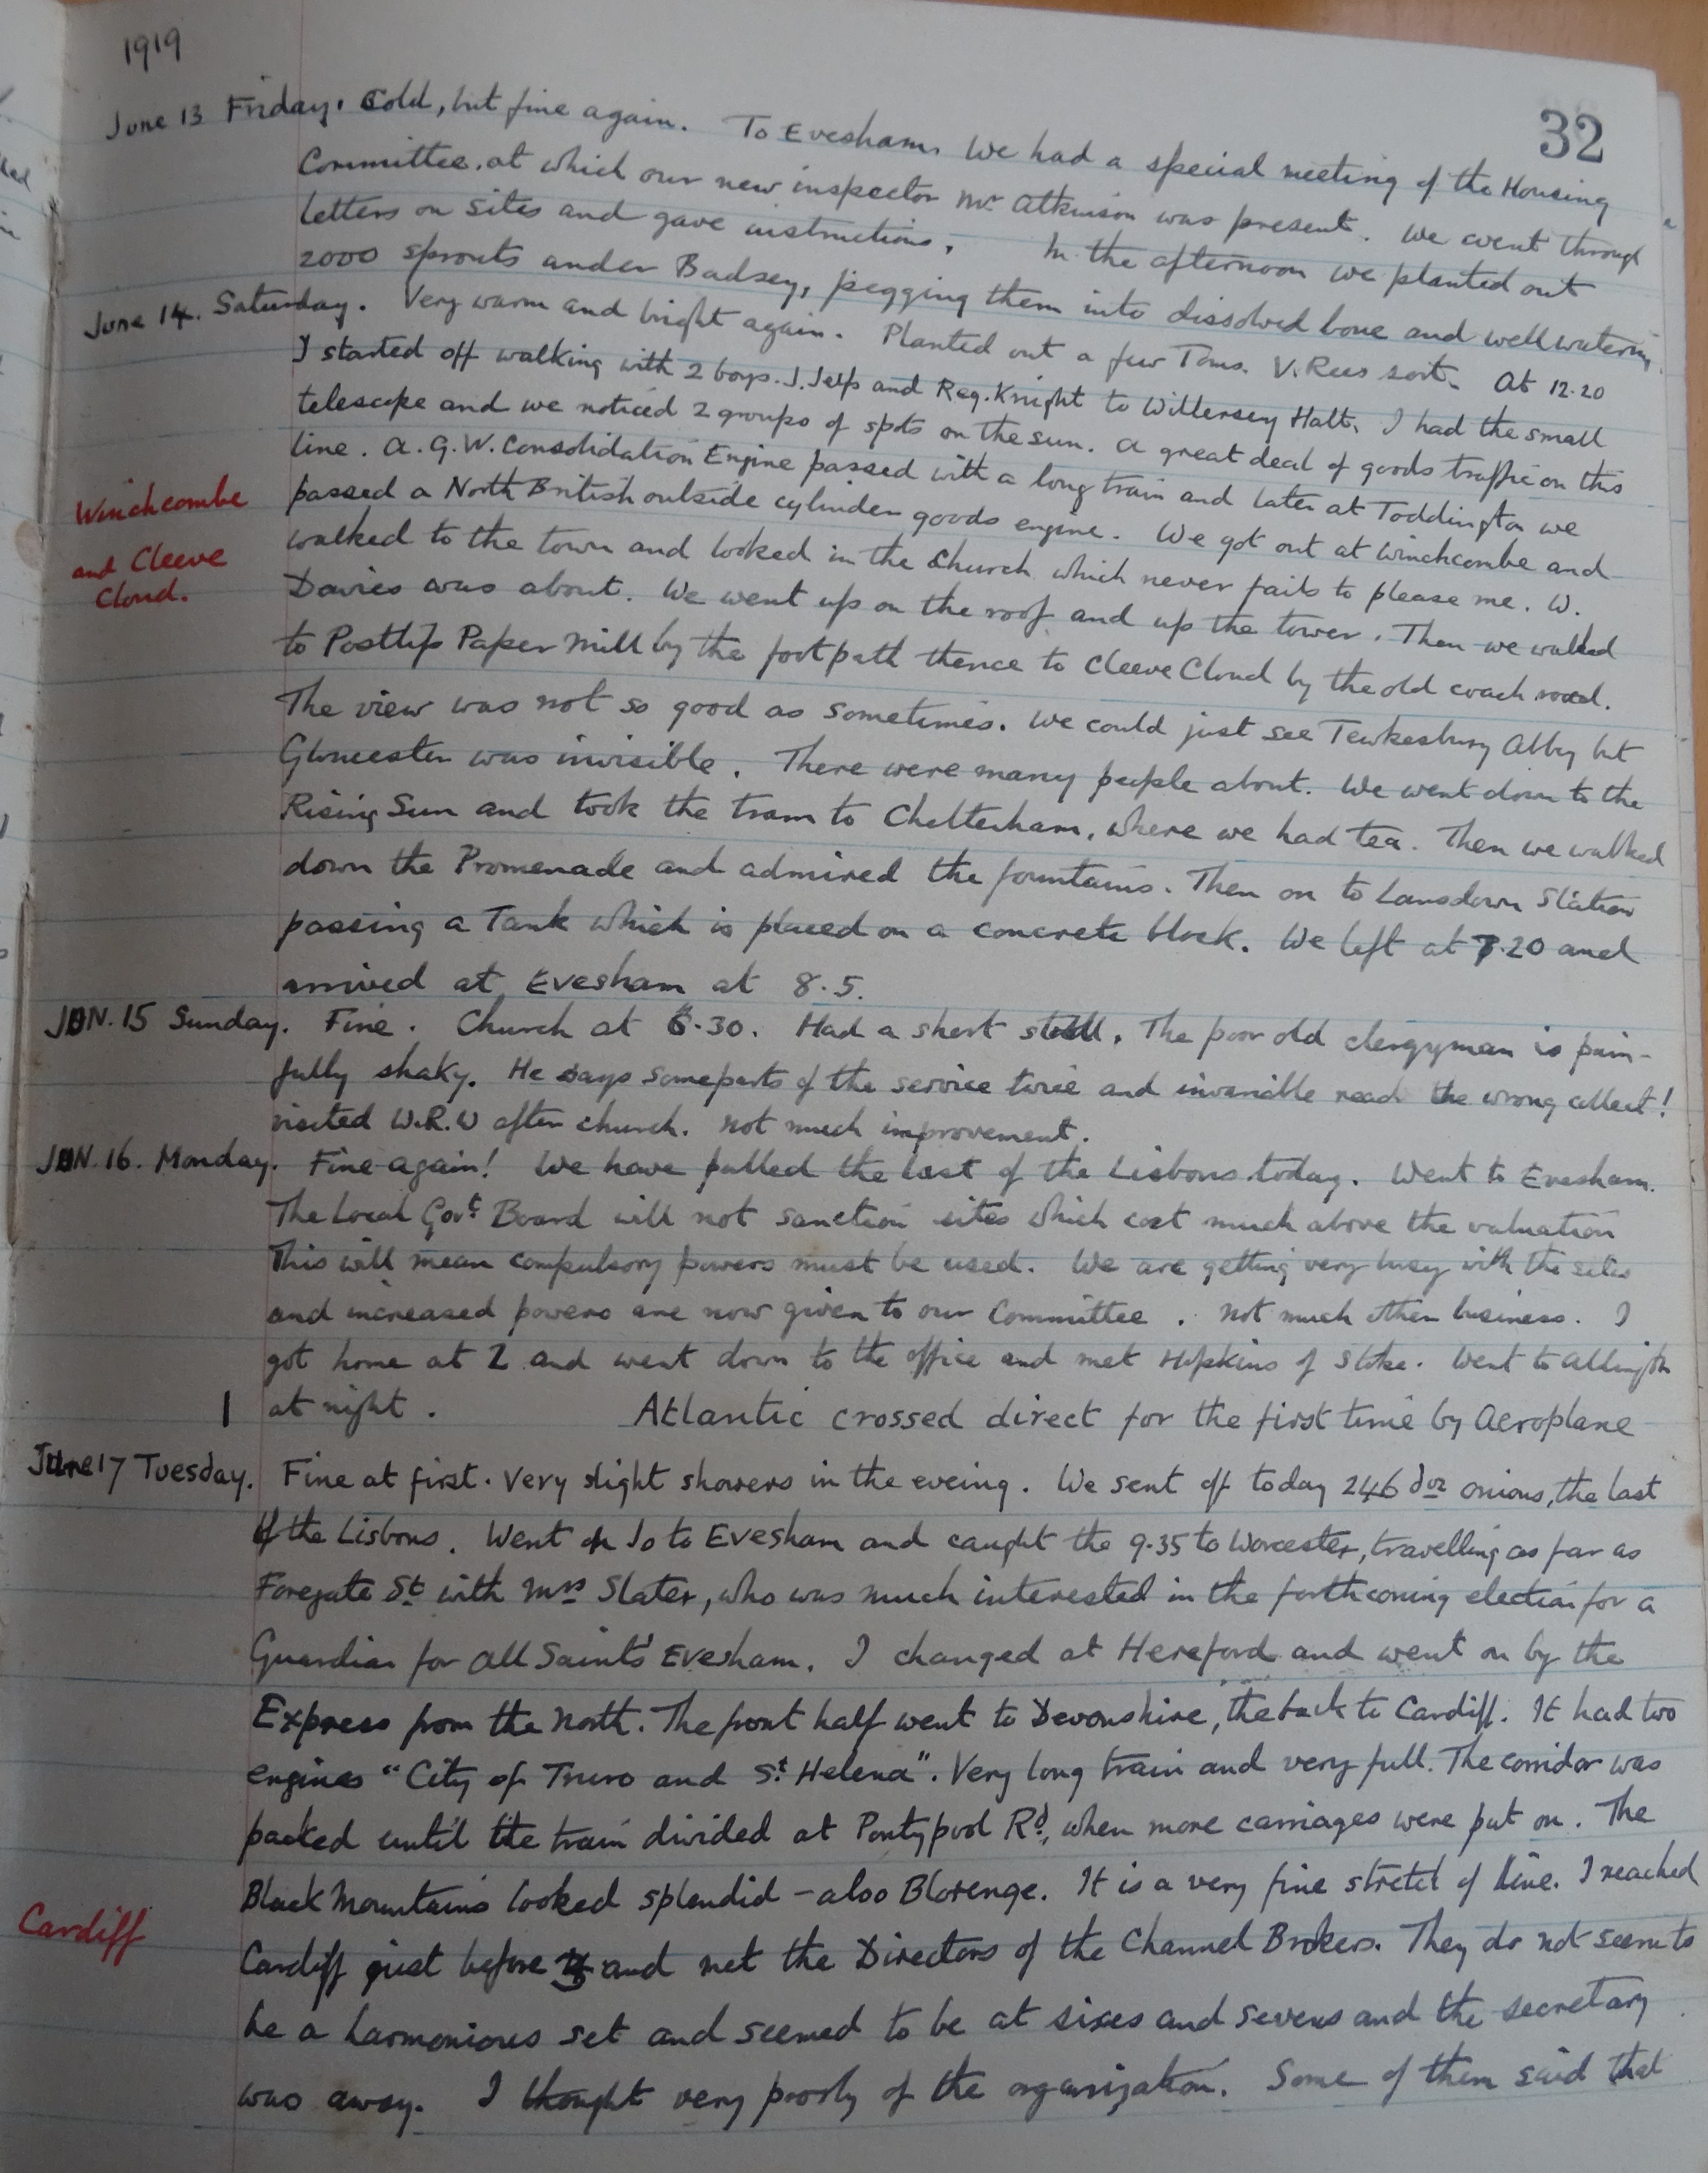 1919
32
June 13 Friday. Cold, but fine again. To Evesham. We had a special meeting of the Housing
Committee. at which our new inspector Mr Atkinson was present. We went through
letters on sites and gave instructions. In the afternoon we planted out
2000 sprouts under Badsey, pegging them into dissolved bone and well watering
June 14. Saturday. Very warm and bright again. Planted out a few Toms. V. Rees sort. At 12.20
I started off walking with 2 boys. J. Jelfs and Reg. Knight to Willersey Halt. I had the small
telescope and we noticed 2 groups of spots on the sun. A great deal of goods traffic on this
line. A. G. W. Consolidation Engine passed with a long train and later at Toddington we
Winchcombe
passed a North British outside cylinder goods engine. We got out at Winchcombe and
and Cleeve
walked to the town and looked in the Church which never fails to please me. W.
Cloud.
Davies was about. We went up on the roof and up the tower. Then we walked
to Postlip Paper Mill by the footpath thence to Cleeve Cloud by the old coach road.
The view was not so good as sometimes. We could just see Tewkesbury Abby but
Gloucester was invisible. There were many people about. We went down to the
Rising Sun and took the tram to Cheltenham, where we had tea. Then we walked
down the Promenade and admired the fountains. Then on to Lansdown Station
passing a Tank which is placed on a concrete block. We left at 7.20 and
arrived at Evesham at 8.5.
JUN. 15 Sunday. Fine. Church at 6.30. Had a short stroll. The poor old clergyman is pain-
fully shaky. He says some parts of the service twice and invarible read the wrong collect!
visited W.R.W after church. Not much improvement.
JUN. 16. Monday. Fine again! We have pulled the last of the Lisbons today. Went to Evesham.
The Local Govt Board will not sanction sites which cost much above the valuation
This will mean compulsory powers must be used. We are getting very busy with the sites
and increased powers are now given to our Committee. Not much other business. I
got home at 2 and went down to the office and met Hopkins of Stoke. Went to Aldington
at night. Atlantic crossed direct for the first time by Aeroplane
June 17 Tuesday. Fine at first. Very slight showers in the eveing. We sent off today 246 doz onions, the last
of the Lisbons. Went on Jo to Evesham and caught the 9.35 to Worcester, travelling as far as
Foregate St with Mrs Slater, who was much interested in the forthcoming election for a
Guardian for All Saints' Evesham. I changed at Hereford and went on by the
Express from the North. The front half went to Devonshire, the back to Cardiff. It had two
engines "City of Truro and St Helena". Very long train and very full. The corridor was
packed until the train divided at Pontypool Rd, when more carriages were put on. The
Black Mountains looked splendid - also Blorenge. It is a very fine stretch of line. I reached
Cardiff
Cardiff just before 3 and met the Directors of the Channel Brokers. They do not seem to
be a harmonious set and seemed to be at sixes and sevens and the secretary
was away. I thought very poorly of the organization. Some of them said that